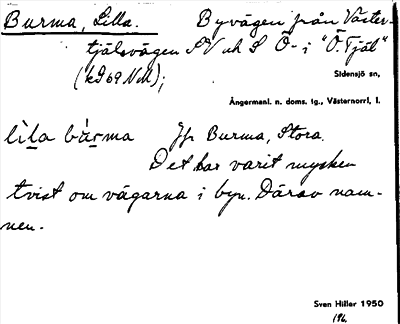 Burma, Lilla. Byvägen från Väster-
tjälsvägen SV och S Ö- i "Ö. Tjäl"
(kG69NM);
Sidensjö sn,
Ångermanl. n. doms. tg., Västernorrl. l.
Jfr Burma, Stora.
Det har varit mycken
tvist om vägarna i byn. Därav nam-
nen.
Sven Hiller 1950